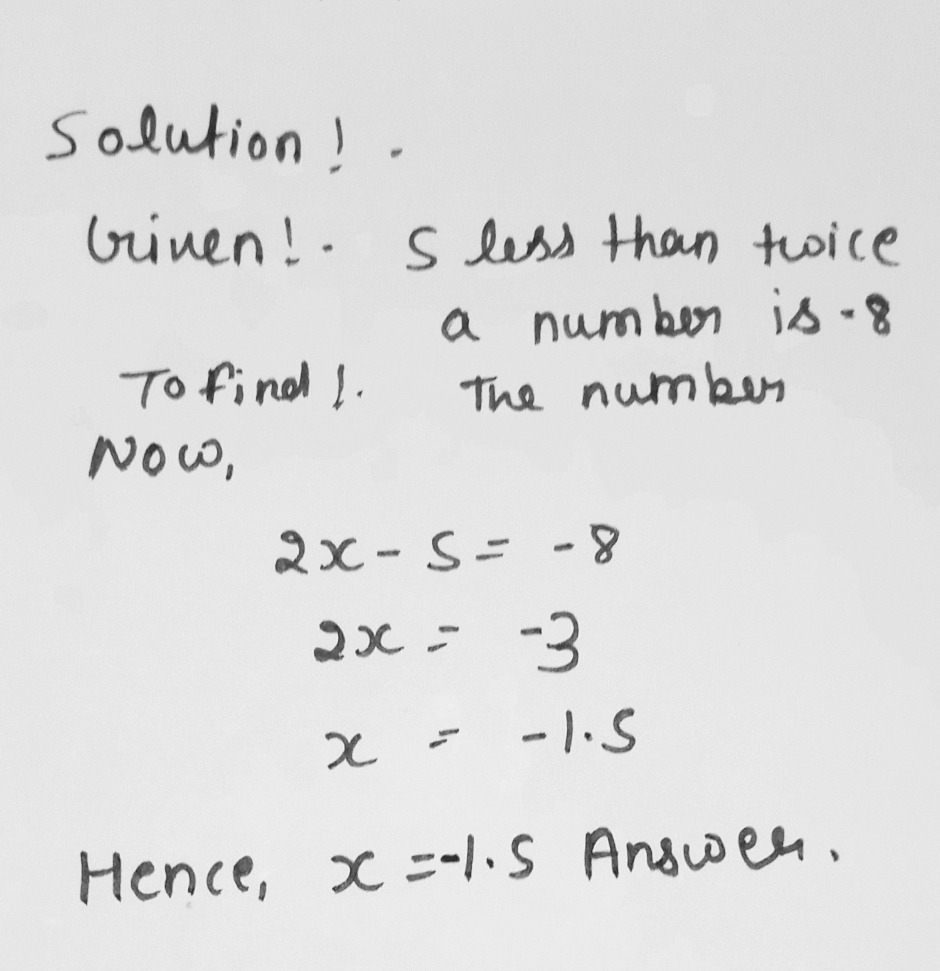 Solution :-
Given :- 5 less than twice
a number is -8
To find :- The number
Now,
2x - 5 = -8
2x = -3
x = -1.5
Hence, x = -1.5 Answer.